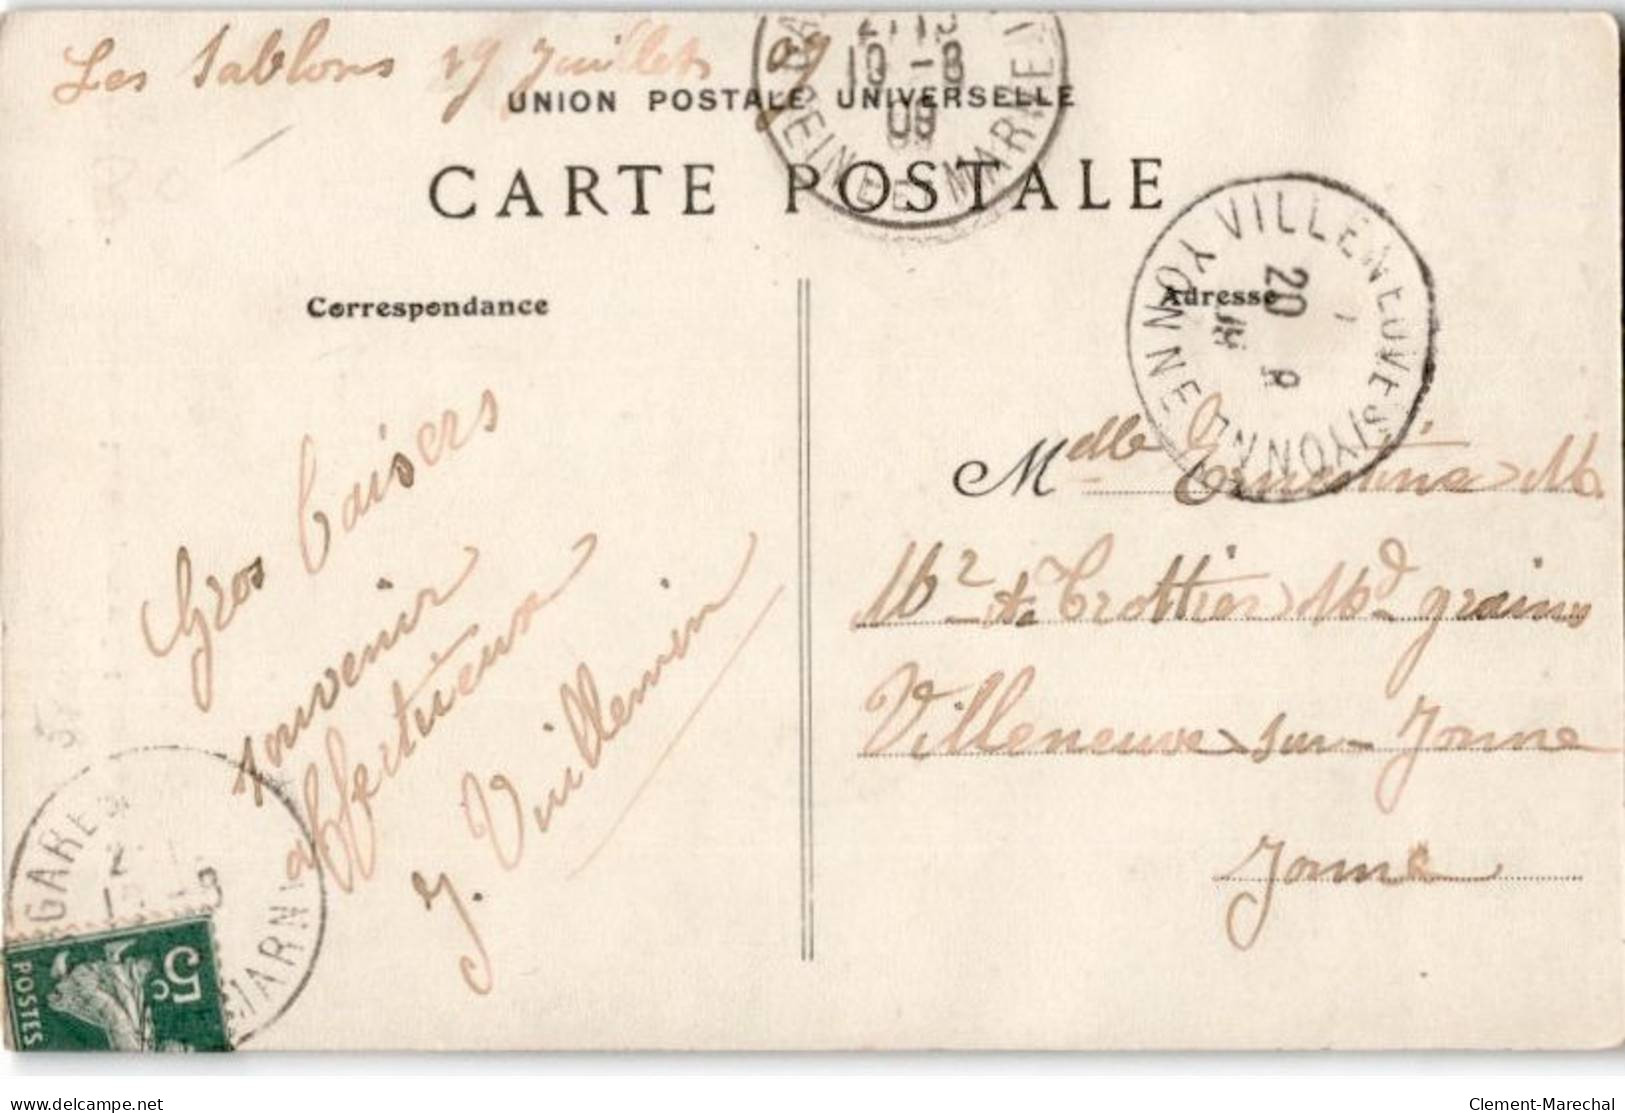 Les Sablons 19 Juillet 09
UNION POSTALE UNIVERSELLE
CARTE POSTALE
SEINE ET MARNE
10 - 8
09
VILLENEUVE S/ YONNE YONNE
20
Correspondance
Adresse
Gros baisers
souvenir
affectueux
J. Vuillemin
Melle Ernestine
Mr Trottier Md grains
Villeneuve sur Yonne
Yonne
GARE
MARN
5c
POSTES
delcampe.net
Clement-Marechal